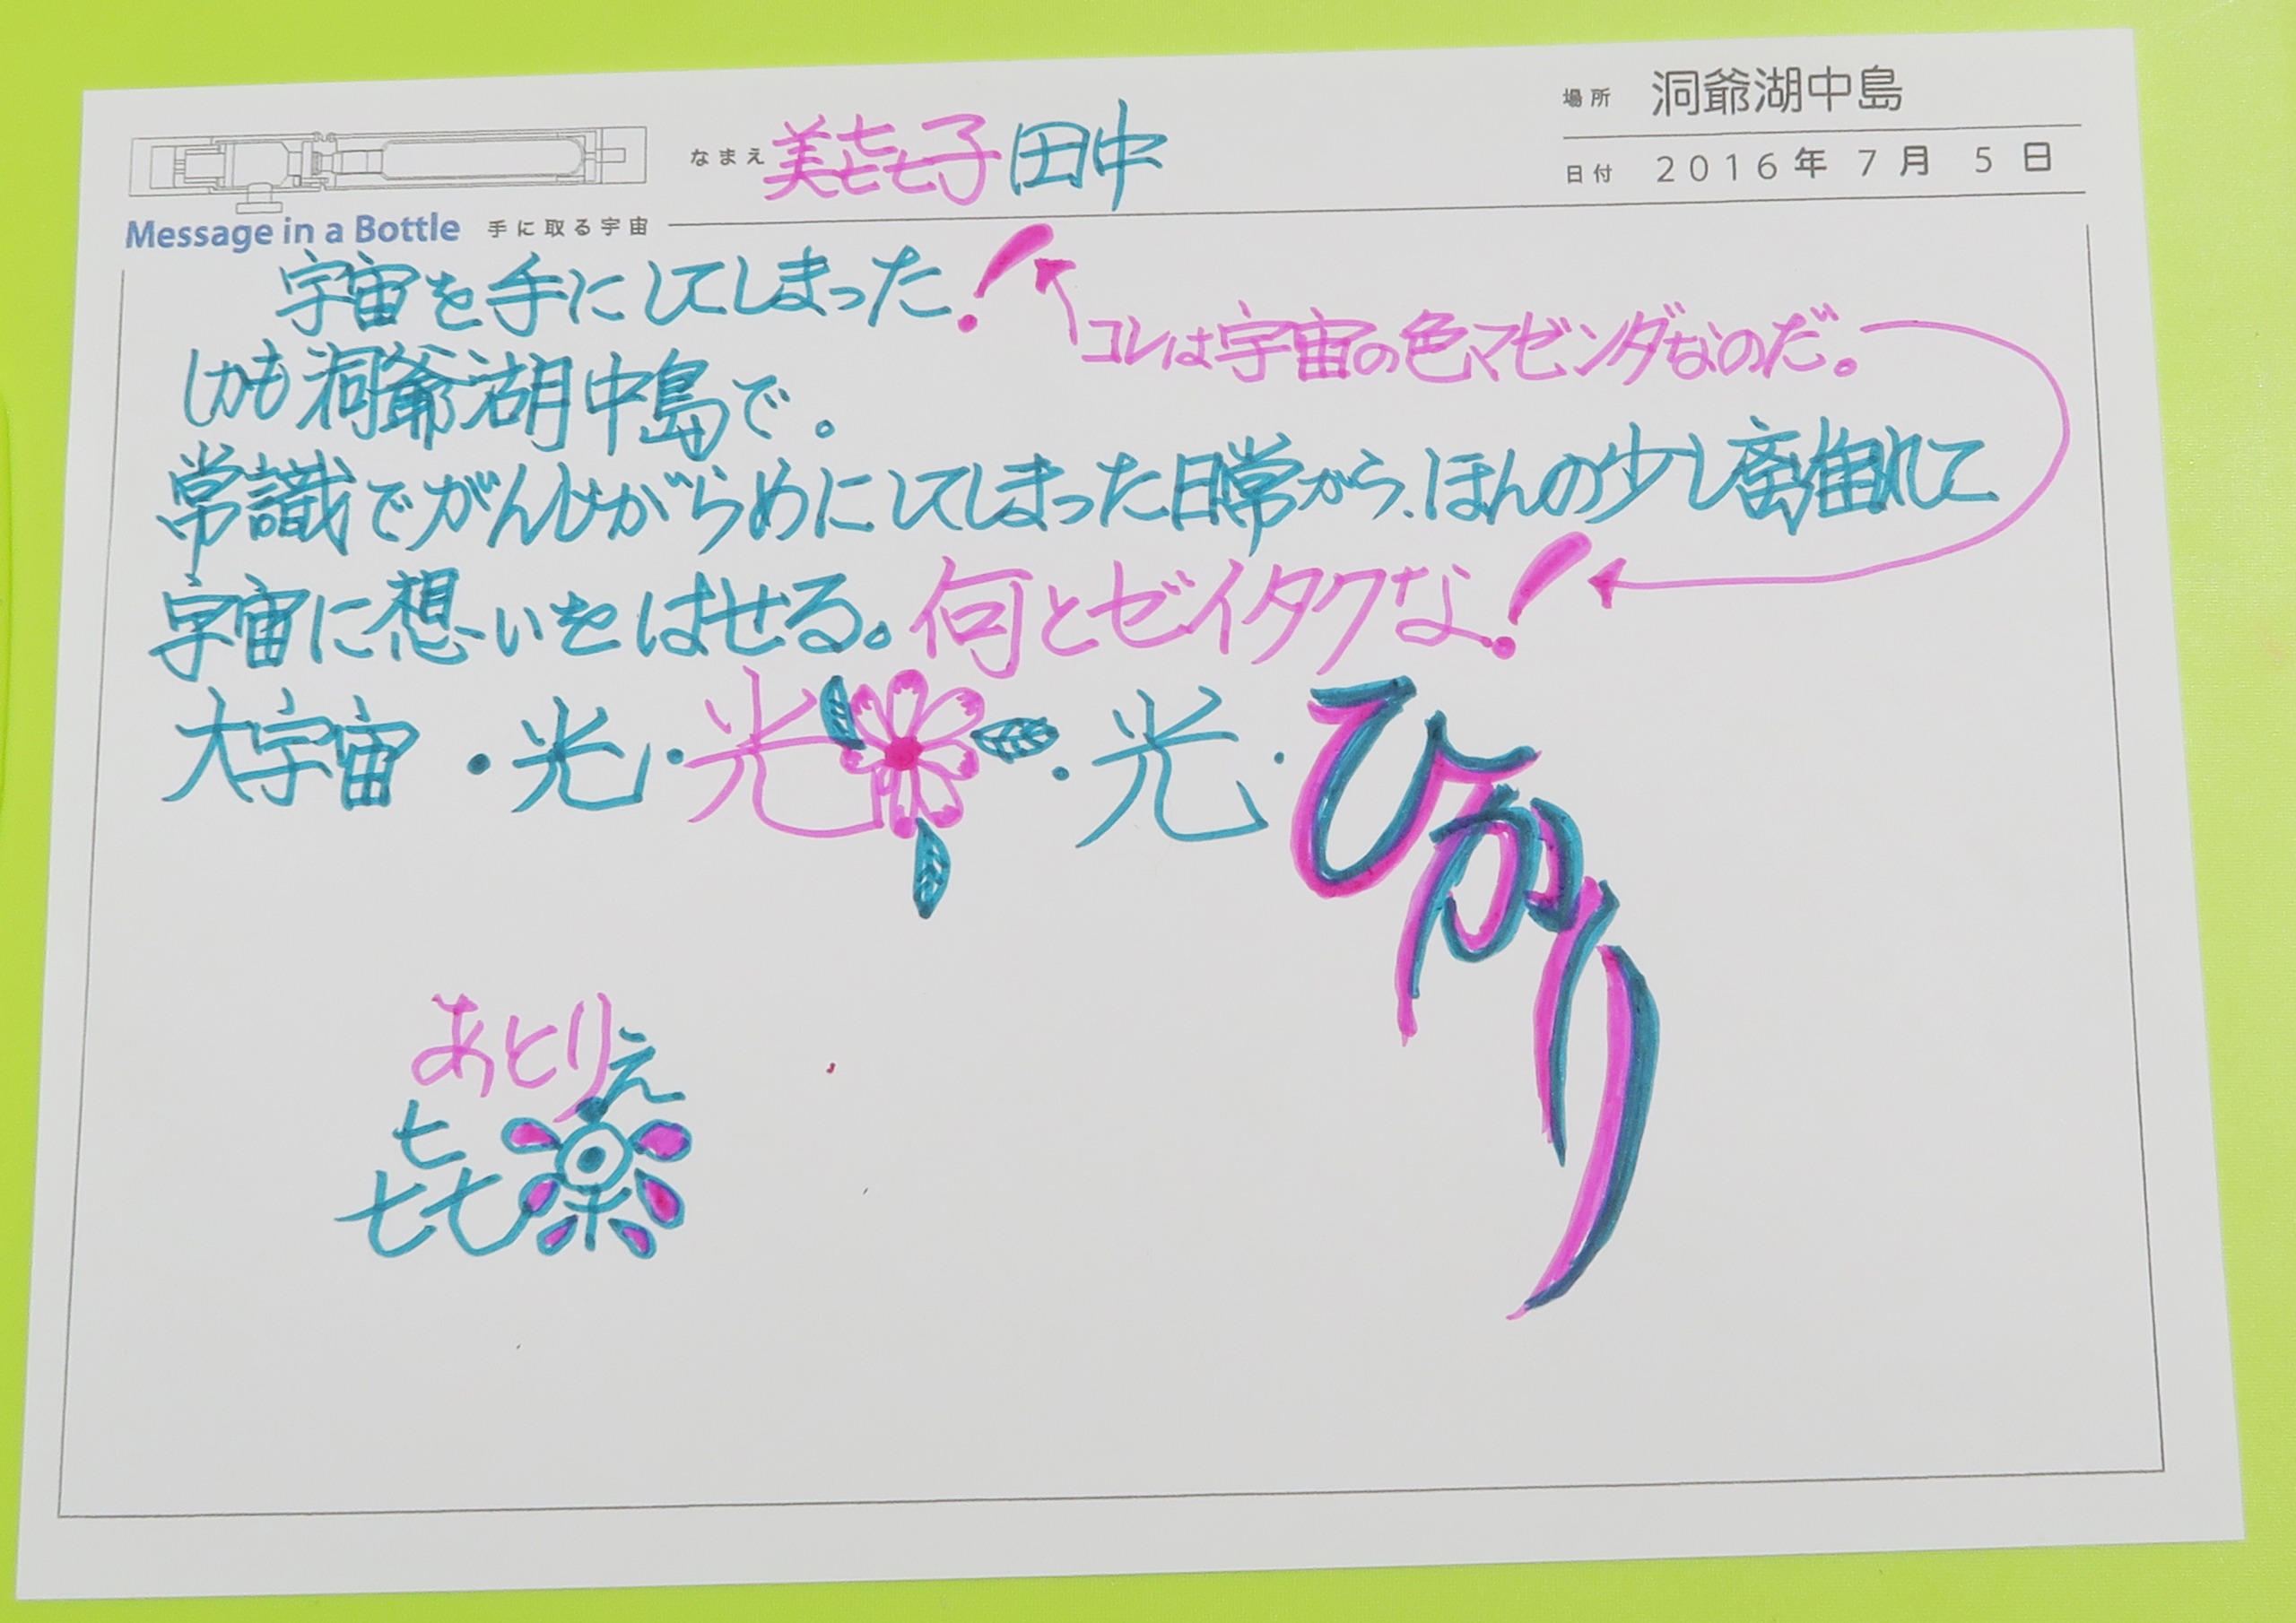 場所 洞爺湖中島
なまえ 美㐂子 田中
日付 2016年 7月 5日
Message in a Bottle 手に取る宇宙
宇宙を手にしてしまった!
コレは宇宙の色マゼンダなのだ。
しかも洞爺湖中島で。
常識でがんじがらめにしてしまった日常から、ほんの少し離れて
宇宙に想いをはせる。何とゼイタクな!
大宇宙・光・光・光・ひかり
あとりえ
㐂楽